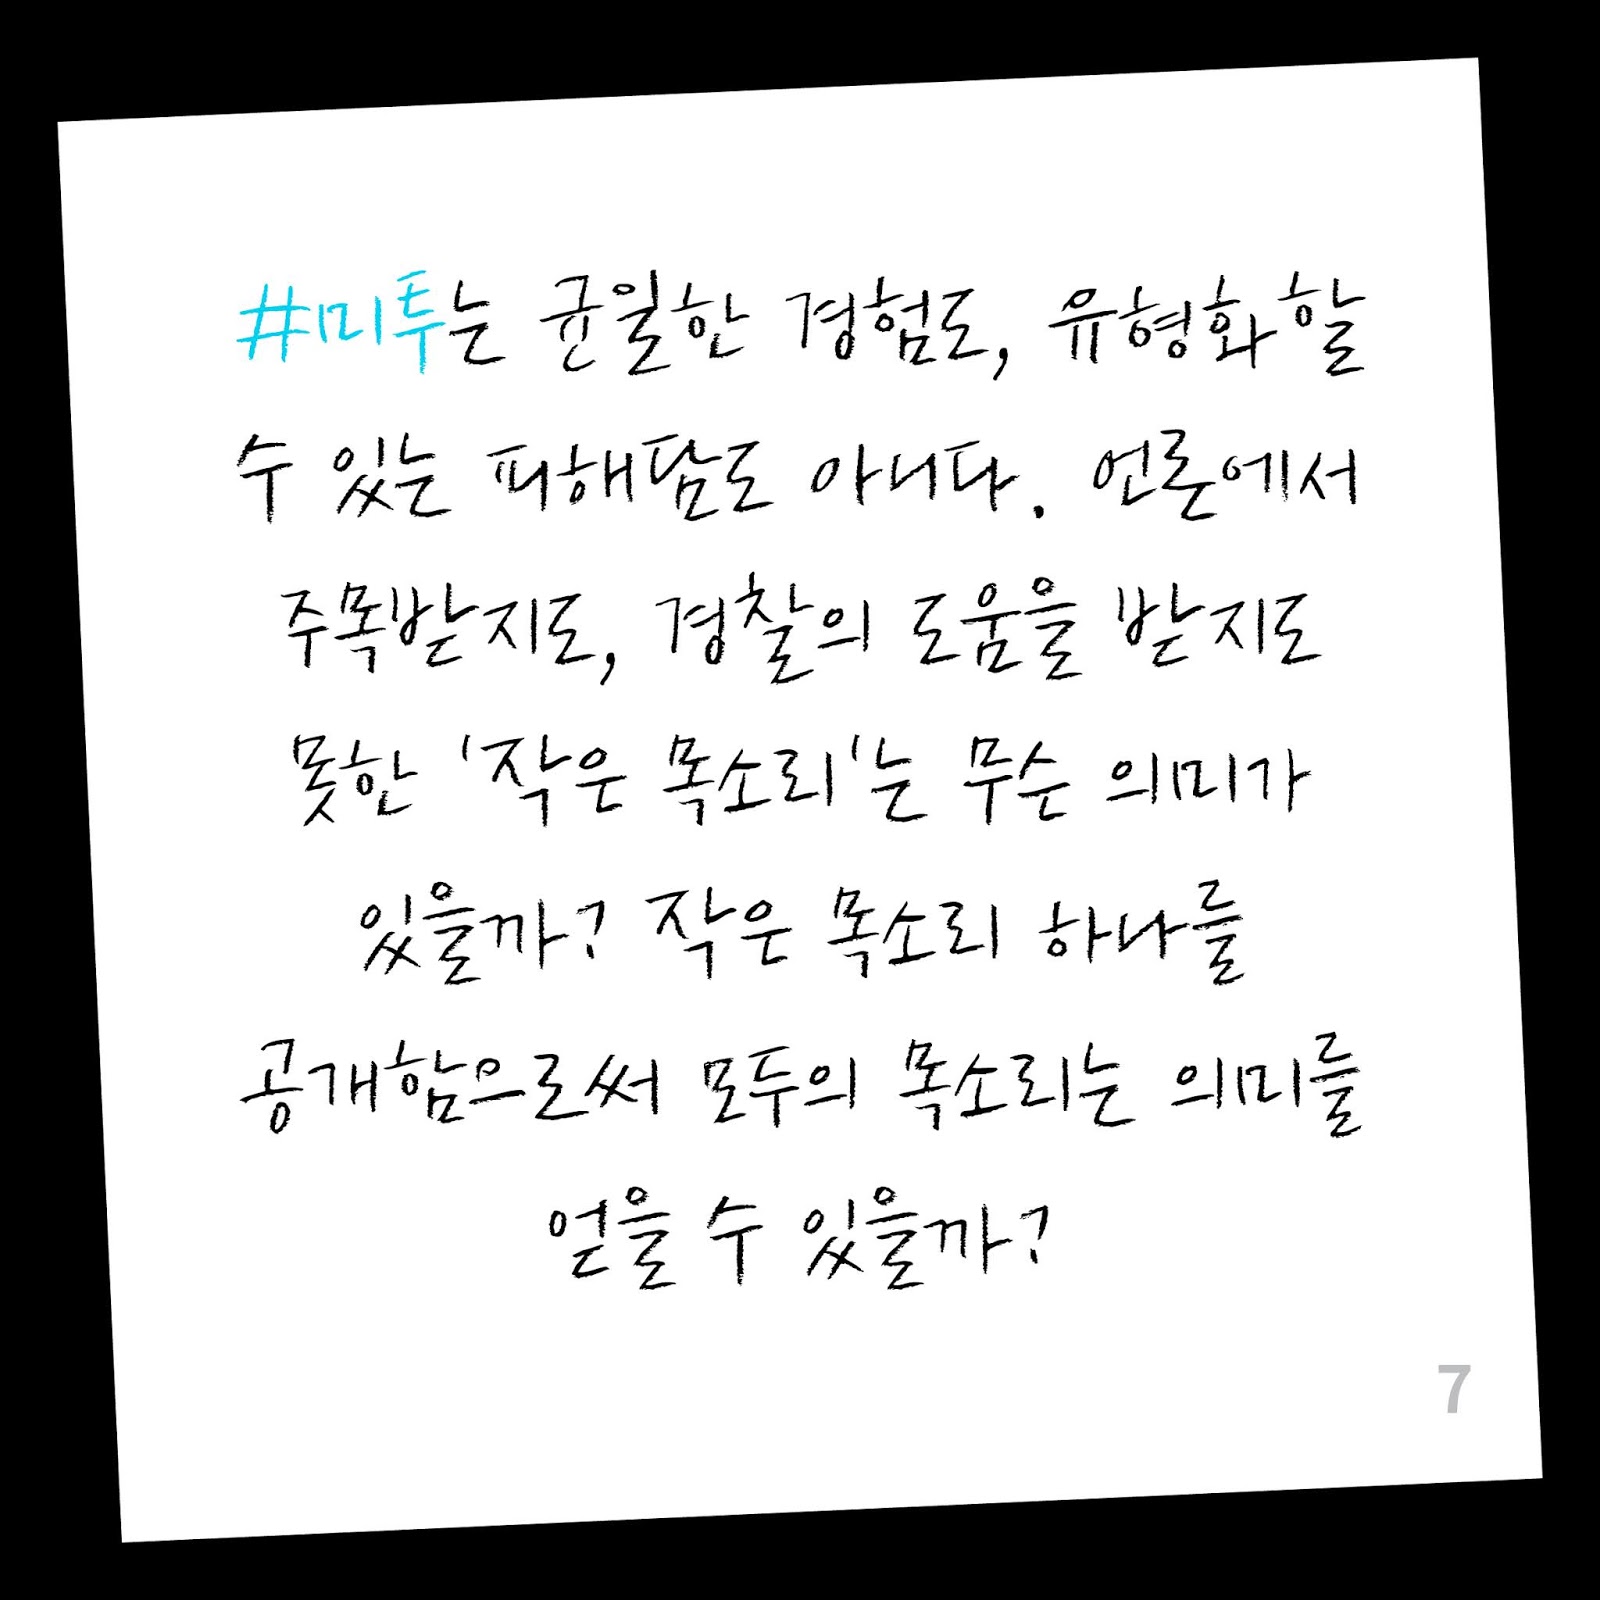 #미투는 균일한 경험도, 유형화할
수 있는 피해담도 아니다. 언론에서
주목받지도, 경찰의 도움을 받지도
못한 '작은 목소리'는 무슨 의미가
있을까? 작은 목소리 하나를
공개함으로써 모두의 목소리는 의미를
얻을 수 있을까?
7